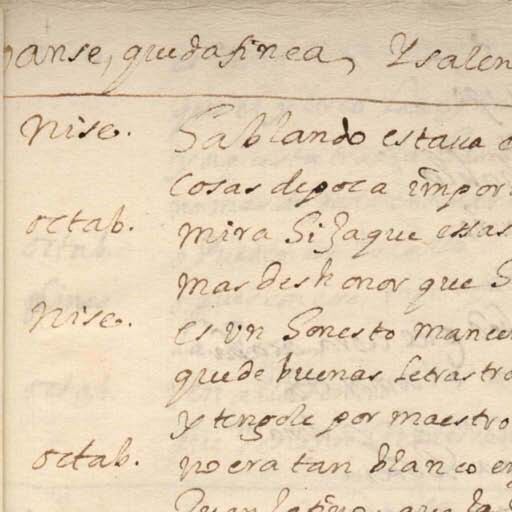 danse, queda finea, Y salen
Nise. Hablando estaua c
cosas de poca impor
octab. mira Hiha que essas
mas deshonor que h
Nise. es vn honesto mance
que de buenas letras tra
Y tengole por maestro
octab. no era tan blanco en
Juan latino, que la